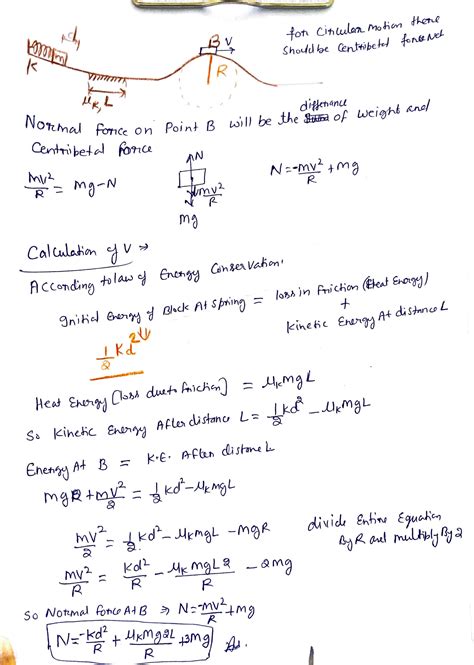 for Circular Motion there
should be Centribetal force Net
B
V
K
R
μk, L
Normal force on Point B will be the difference of weight and
Centribetal force
mv²/R = mg-N
N
mv²/R
mg
N=-mv²/R + mg
Calculation of V →
According to law of Energy Conservation.
Initial Energy of Block At spring = loss in friction (Heat Energy)
+
Kinetic Energy At distance L
1/2 Kd²
Heat Energy [loss due to friction] = μkmgL
So Kinetic Energy After distance L = 1/2 Kd² - μkmgL
Energy At B = K.E. After distance L
mgR + mv²/2 = 1/2 Kd² - μkmgL
mv²/2 = 1/2 Kd² - μkmgL - mgR
divide Entire Equation
By R and multiply By 2
mv²/R = Kd²/R - μkmgL2/R - 2mg
So Normal force At B ⇒ N=-mv²/R + mg
N=-Kd²/R + μkmg2L/R + 3mg Ans.